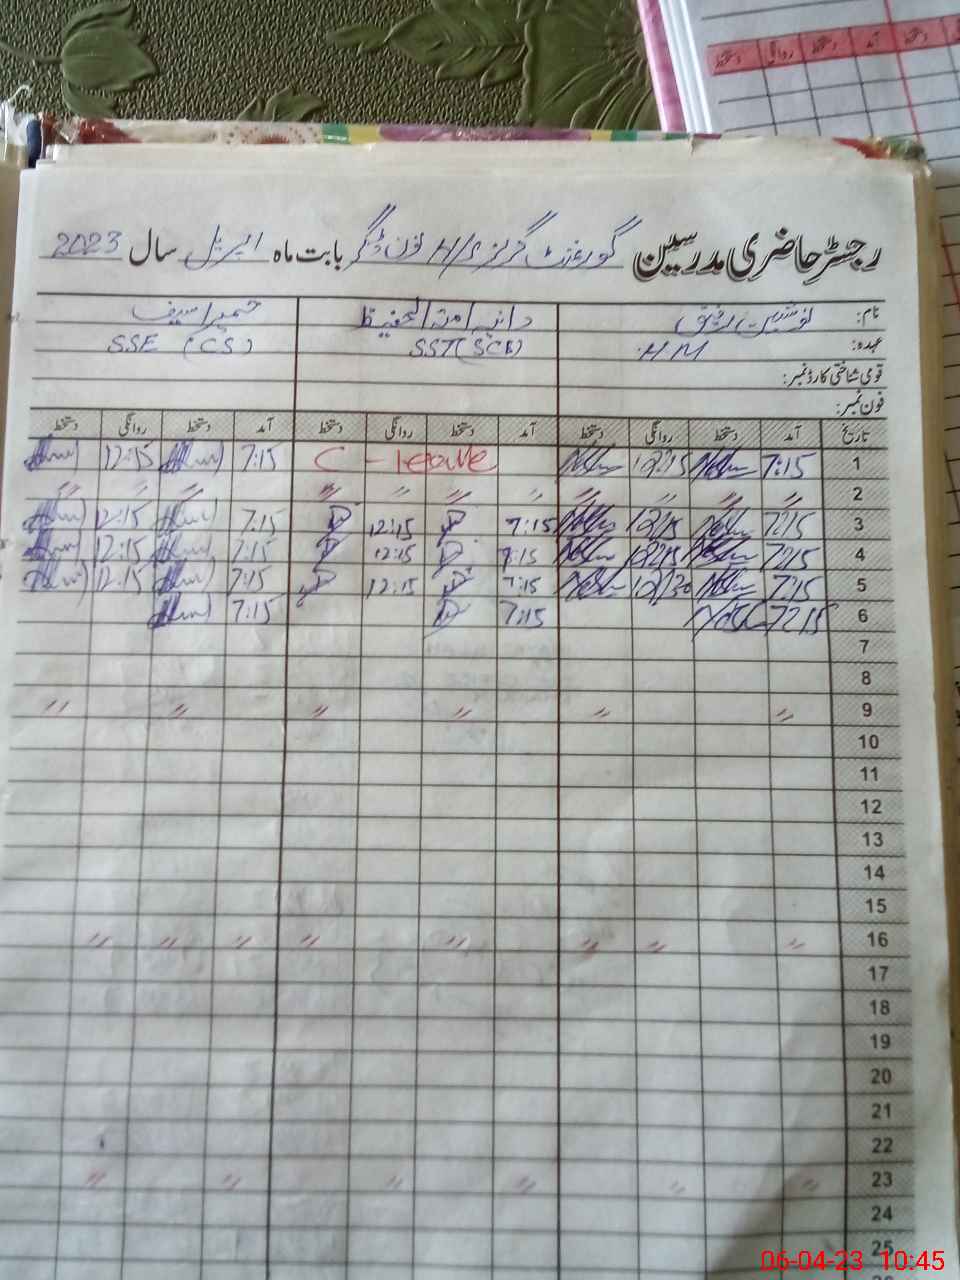 دستخط روانگی دستخط آمد دستخط
رجسٹر حاضری مدرسین گورنمنٹ گرلز H/S بابت ماہ اپریل سال 2023
نام: نوشین دانیہ امتہ الحفیظ
عہدہ: HM SST (SCI) SSE (CS)
قومی شناختی کارڈ نمبر:
فون نمبر:
تاریخ آمد دستخط روانگی دستخط آمد دستخط روانگی دستخط آمد دستخط روانگی دستخط
1 7:15 12:15 C-leave 7:15 12:15
2 〃 〃 〃 〃 〃 〃 〃 〃 〃 〃 〃
3 7:15 12:15 7:15 12:15 7:15 12:15
4 7:15 12:15 7:15 12:15 7:15 12:15
5 7:15 12:30 7:15 12:15 7:15 12:15
6 7:15 7:15 7:15
7
8
9 〃 〃 〃 〃 〃 〃
10
11
12
13
14
15
16 〃 〃 〃 〃 〃 〃 〃 〃
17
18
19
20
21
22
23 〃 〃 〃 〃 〃 〃
24
25
06-04-23 10:45